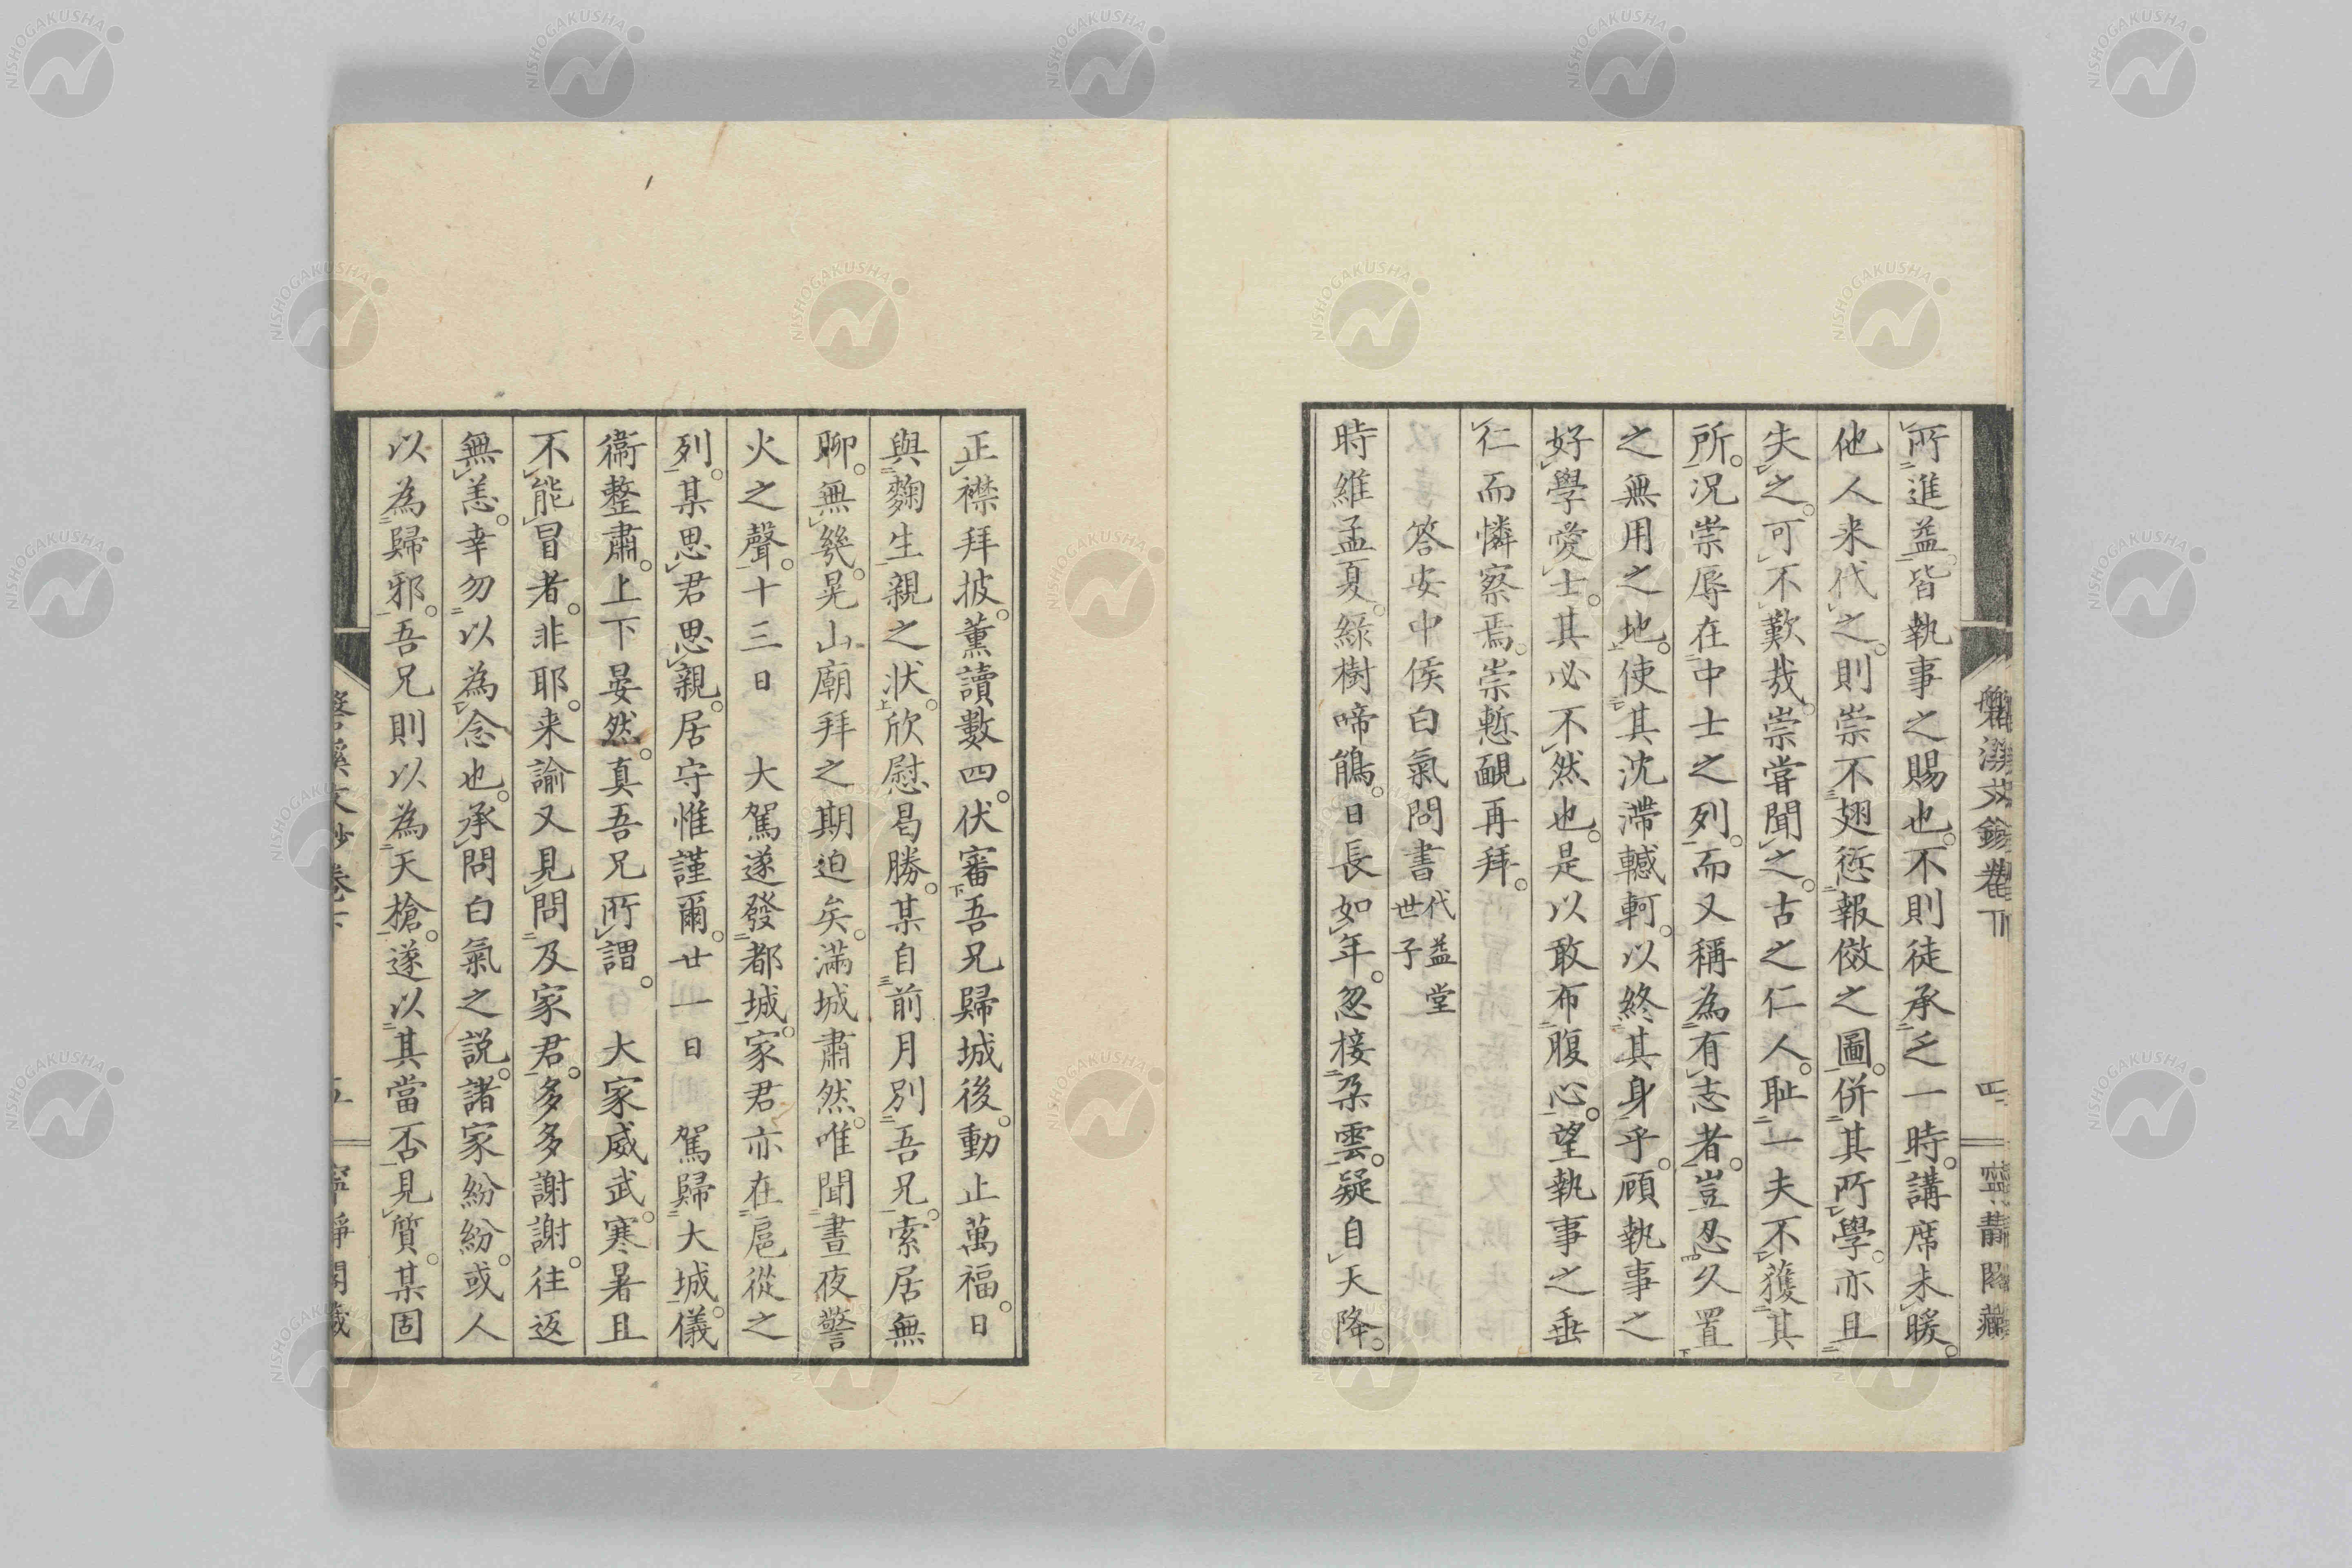 所進益。皆執事之賜也。不則徒承乏一時。講席未暖。
他人来代之。則崇不翅愆報傚之圖。併其所學。亦且
失之。可不歎哉。崇嘗聞之。古之仁人。耻一夫不獲其
所。况崇辱在中士之列。而又稱為有志者。豈忍久置
之無用之地。使其沈滯轗軻。以終其身乎。顧執事之
好學愛士。其必不然也。是以敢布腹心。望執事之垂
仁而憐察焉。崇慙靦再拜。
答安中侯白氣問書 代益堂世子
時維孟夏。綠樹啼鵑。日長如年。忽接朶雲。疑自天降。
正襟拜披。薰讀數四。伏審吾兄歸城後。動止萬福。日
與麴生親之状。欣慰曷勝。某自前月別吾兄。索居無
聊。無幾。晃山廟拜之期迫矣。滿城肅然。唯聞晝夜警
火之聲。十三日 大駕遂發都城。家君亦在扈從之
列。某思君思親。居守惟謹爾。廿一日 駕歸大城。儀
衞整肅。上下晏然。真吾兄所謂。 大家威武。寒暑且
不能冒者。非耶。来諭又見問及家君。多多謝謝。往返
無恙。幸勿以為念也。承問白氣之説。諸家紛紛。或人
以為歸邪。吾兄則以為天槍。遂以其當否見質。某固
文鈔卷下
四
五